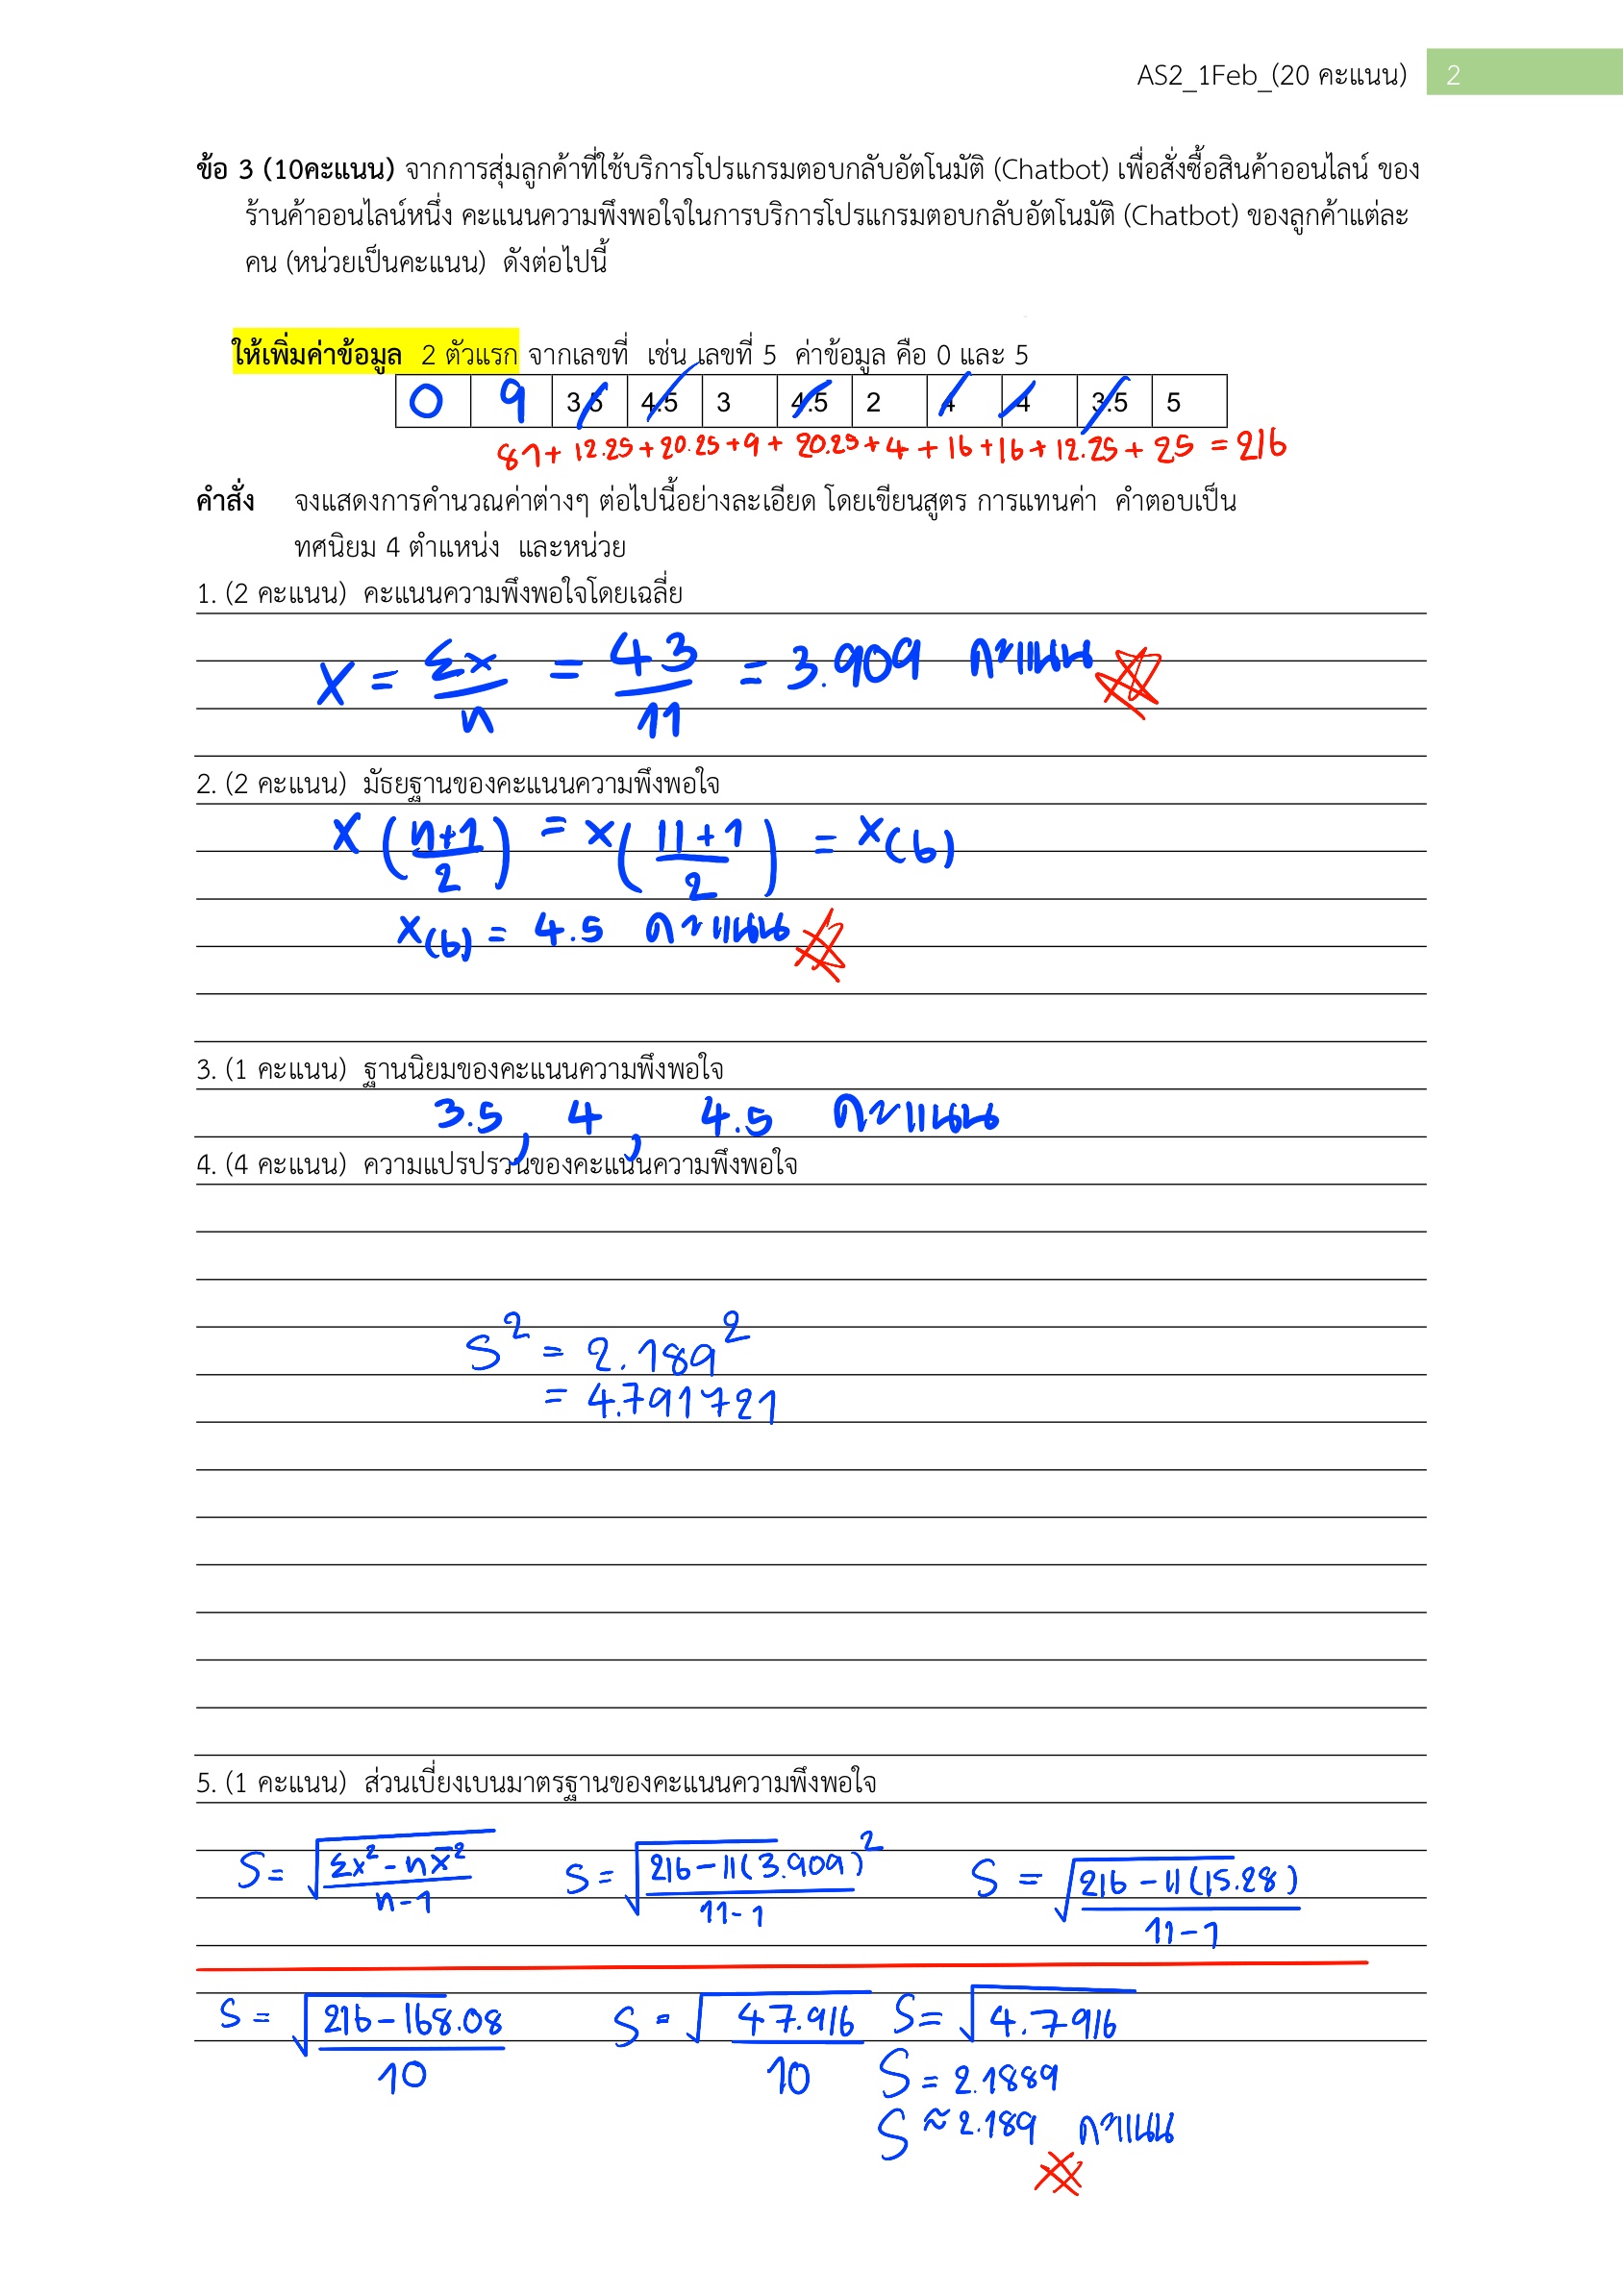 AS2_1Feb_(20 คะแนน) 2
ข้อ 3 (10คะแนน) จากการสุ่มลูกค้าที่ใช้บริการโปรแกรมตอบกลับอัตโนมัติ (Chatbot) เพื่อสั่งซื้อสินค้าออนไลน์ ของ
ร้านค้าออนไลน์หนึ่ง คะแนนความพึงพอใจในการบริการโปรแกรมตอบกลับอัตโนมัติ (Chatbot) ของลูกค้าแต่ละ
คน (หน่วยเป็นคะแนน) ดังต่อไปนี้
ให้เพิ่มค่าข้อมูล 2 ตัวแรก จากเลขที่ เช่น เลขที่ 5 ค่าข้อมูล คือ 0 และ 5
0 9 3.5 4.5 3 4.5 2 4 4 3.5 5
81 + 12.25 + 20.25 + 9 + 20.25 + 4 + 16 + 16 + 12.25 + 25 = 216
คำสั่ง จงแสดงการคำนวณค่าต่างๆ ต่อไปนี้อย่างละเอียด โดยเขียนสูตร การแทนค่า คำตอบเป็น
ทศนิยม 4 ตำแหน่ง และหน่วย
1. (2 คะแนน) คะแนนความพึงพอใจโดยเฉลี่ย
X = Σx/n = 43/11 = 3.909 คะแนน
2. (2 คะแนน) มัธยฐานของคะแนนความพึงพอใจ
X((n+1)/2) = x((11+1)/2) = x(6)
x(6) = 4.5 คะแนน
3. (1 คะแนน) ฐานนิยมของคะแนนความพึงพอใจ
3.5, 4, 4.5 คะแนน
4. (4 คะแนน) ความแปรปรวนของคะแนนความพึงพอใจ
S² = 2.189²
= 4.791721
5. (1 คะแนน) ส่วนเบี่ยงเบนมาตรฐานของคะแนนความพึงพอใจ
S = √((Σx² - nx̄²)/(n-1)) S = √((216 - 11(3.909)²)/(11-1)) S = √((216 - 11(15.28))/(11-1))
S = √((216 - 168.08)/10) S = √(47.916/10) S = √4.7916
S = 2.1889
S ≈ 2.189 คะแนน